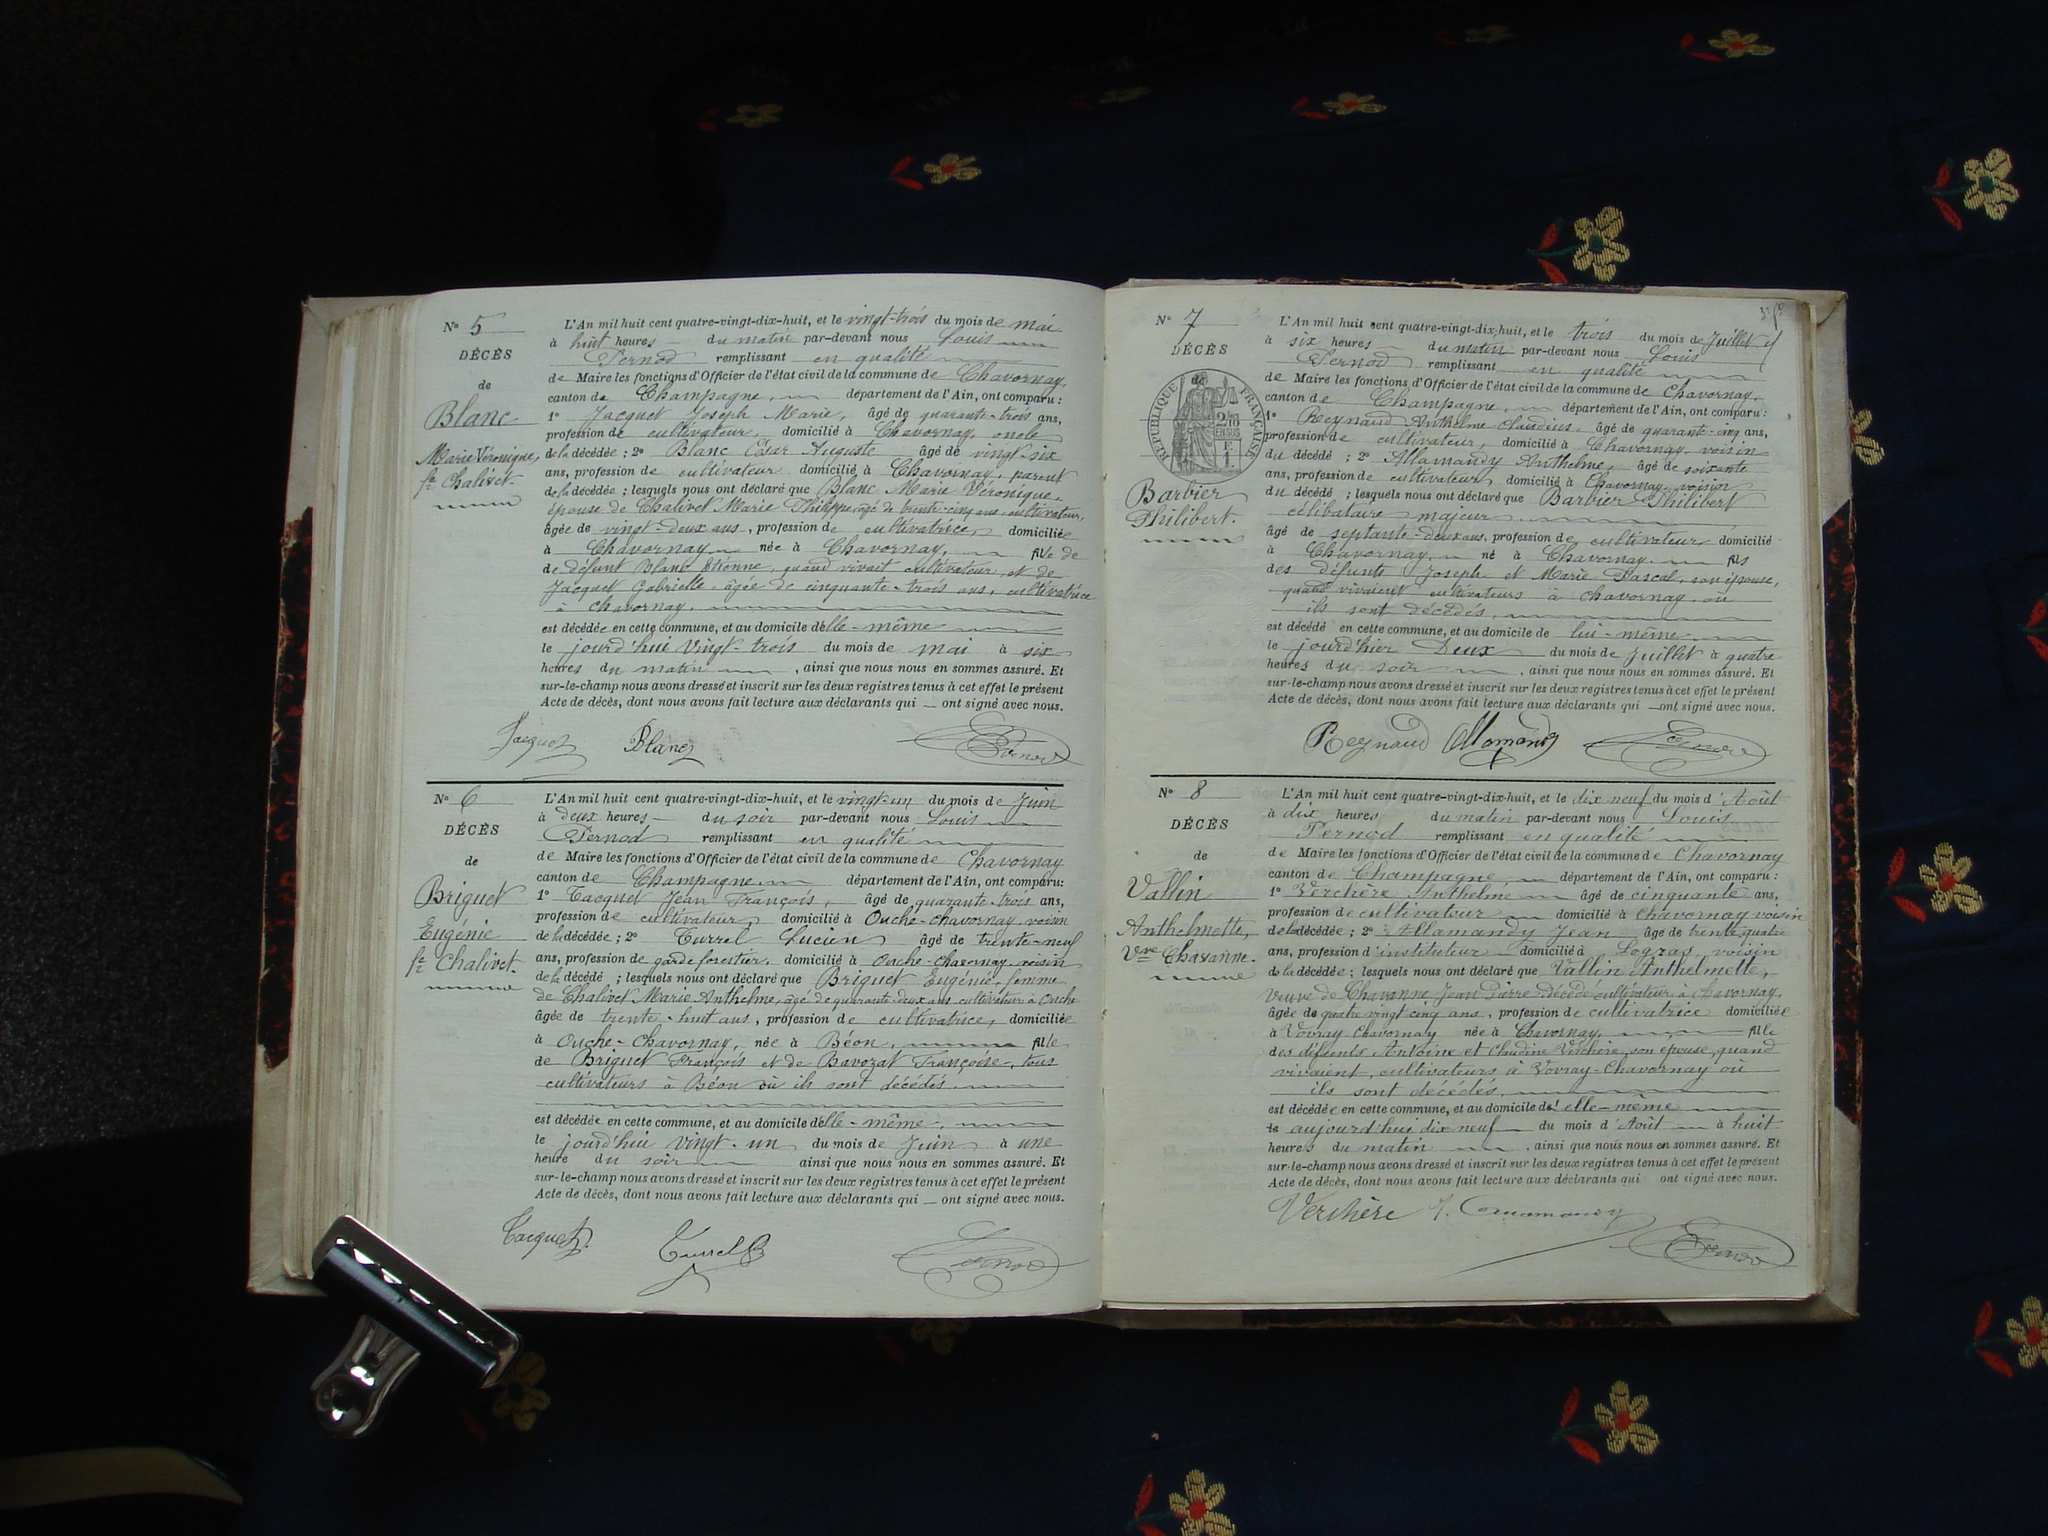 Nº 5
DÉCÈS
de
Blanc
Marie Véronique,
fe Chalivet
L'An mil huit cent quatre-vingt-dix-huit, et le vingt-trois du mois de mai
à huit heures du matin par-devant nous Louis
Pernod remplissant en qualité
de Maire les fonctions d'Officier de l'état civil de la commune de Chavornay,
canton de Champagne, département de l'Ain, ont comparu:
1º Jacquet Joseph Marie, âgé de quarante-trois ans,
profession de cultivateur, domicilié à Chavornay, oncle
de la décédée; 2º Blanc César Auguste âgé de vingt-six
ans, profession de cultivateur domicilié à Chavornay, parent
de la décédée; lesquels nous ont déclaré que Blanc Marie Véronique,
épouse de Chalivet Marie Philippe, âgé de trente-cinq ans, cultivateur,
âgée de vingt-deux ans, profession de cultivatrice, domiciliée
à Chavornay née à Chavornay, fille de
de défunt Blanc Etienne, quand vivait cultivateur, et de
Jacquet Gabrielle, âgée de cinquante-trois ans, cultivatrice
à Chavornay,
est décédée en cette commune, et au domicile d'elle-même
le jourd'hui vingt-trois du mois de mai à six
heures du matin, ainsi que nous nous en sommes assuré. Et
sur-le-champ nous avons dressé et inscrit sur les deux registres tenus à cet effet le présent
Acte de décès, dont nous avons fait lecture aux déclarants qui ont signé avec nous.
Jacquet Blanc Pernod
Nº 6
DÉCÈS
de
Briguet
Eugénie
fe Chalivet
L'An mil huit cent quatre-vingt-dix-huit, et le vingt-un du mois de Juin
à deux heures du soir par-devant nous Louis
Pernod remplissant en qualité
de Maire les fonctions d'Officier de l'état civil de la commune de Chavornay
canton de Champagne, département de l'Ain, ont comparu:
1º Tacquet Jean François, âgé de quarante-trois ans,
profession de cultivateur, domicilié à Ouche-Chavornay, voisin
de la décédée; 2º Turrel Lucien âgé de trente-neuf
ans, profession de garde forestier, domicilié à Ouche-Chavornay, voisin
de la décédé; lesquels nous ont déclaré que Briguet Eugénie, femme
de Chalivet Marie Anthelme, âgé de quarante deux ans cultivateur à Ouche
âgée de trente-huit ans, profession de cultivatrice, domiciliée
à Ouche-Chavornay, née à Béon, fille
de Briguet François et de Bavozat Françoise, tous
cultivateurs à Béon où ils sont décédés
est décédée en cette commune, et au domicile d'elle-même,
le jourd'hui vingt-un du mois de Juin à une
heure du soir ainsi que nous nous en sommes assuré. Et
sur-le-champ nous avons dressé et inscrit sur les deux registres tenus à cet effet le présent
Acte de décès, dont nous avons fait lecture aux déclarants qui ont signé avec nous.
Tacquet Turrel Pernod
Nº 7
DÉCÈS
de
RÉPUBLIQUE FRANÇAISE
Barbier
Philibert.
L'An mil huit cent quatre-vingt-dix-huit, et le trois du mois de Juillet
à six heures du matin par-devant nous Louis
Pernod remplissant en qualité
de Maire les fonctions d'Officier de l'état civil de la commune de Chavornay,
canton de Champagne, département de l'Ain, ont comparu:
1º Reynaud Anthelme Claudius, âgé de quarante-cinq ans,
profession de cultivateur, domicilié à Chavornay, voisin
du décédé; 2º Allamandy Anthelme, âgé de soixante
ans, profession de cultivateur, domicilié à Chavornay, voisin
du décédé; lesquels nous ont déclaré que Barbier Philibert
célibataire majeur
âgé de septante-deux ans, profession de cultivateur domicilié
à Chavornay, né à Chavornay, fils
des défunts Joseph et Marie Pascal, son épouse,
quand vivaient cultivateurs à Chavornay, où
ils sont décédés,
est décédé en cette commune, et au domicile de lui-même
le jourd'hier Deux du mois de Juillet à quatre
heures du soir, ainsi que nous nous en sommes assuré. Et
sur-le-champ nous avons dressé et inscrit sur les deux registres tenus à cet effet le présent
Acte de décès, dont nous avons fait lecture aux déclarants qui ont signé avec nous.
Reynaud Allamandy Pernod
Nº 8
DÉCÈS
de
Vallin
Anthelmette,
Vve Chavanne
L'An mil huit cent quatre-vingt-dix-huit, et le dix neuf du mois d'Août
à dix heures du matin par-devant nous Louis
Pernod remplissant en qualité
de Maire les fonctions d'Officier de l'état civil de la commune de Chavornay
canton de Champagne, département de l'Ain, ont comparu:
1º Verchère Anthelme âgé de cinquante ans,
profession de cultivateur domicilié à Chavornay voisin
de la décédée; 2º Allamandy Jean âgé de trente quatre
ans, profession d'instituteur domicilié à Logras, voisin
de la décédée; lesquels nous ont déclaré que Vallin Anthelmette,
veuve de Chavanne Jean Pierre décédé cultivateur à Chavornay,
âgée de quatre vingt cinq ans, profession de cultivatrice domiciliée
à Vovray Chavornay née à Chavornay, fille
des défunts Antoine et Claudine Verchère, son épouse, quand
vivaient, cultivateurs à Vovray-Chavornay où
ils sont décédés
est décédée en cette commune, et au domicile d'elle-même
aujourd'hui dix neuf du mois d'Août à huit
heures du matin, ainsi que nous nous en sommes assuré. Et
sur-le-champ nous avons dressé et inscrit sur les deux registres tenus à cet effet le présent
Acte de décès, dont nous avons fait lecture aux déclarants qui ont signé avec nous.
Verchère Pernod